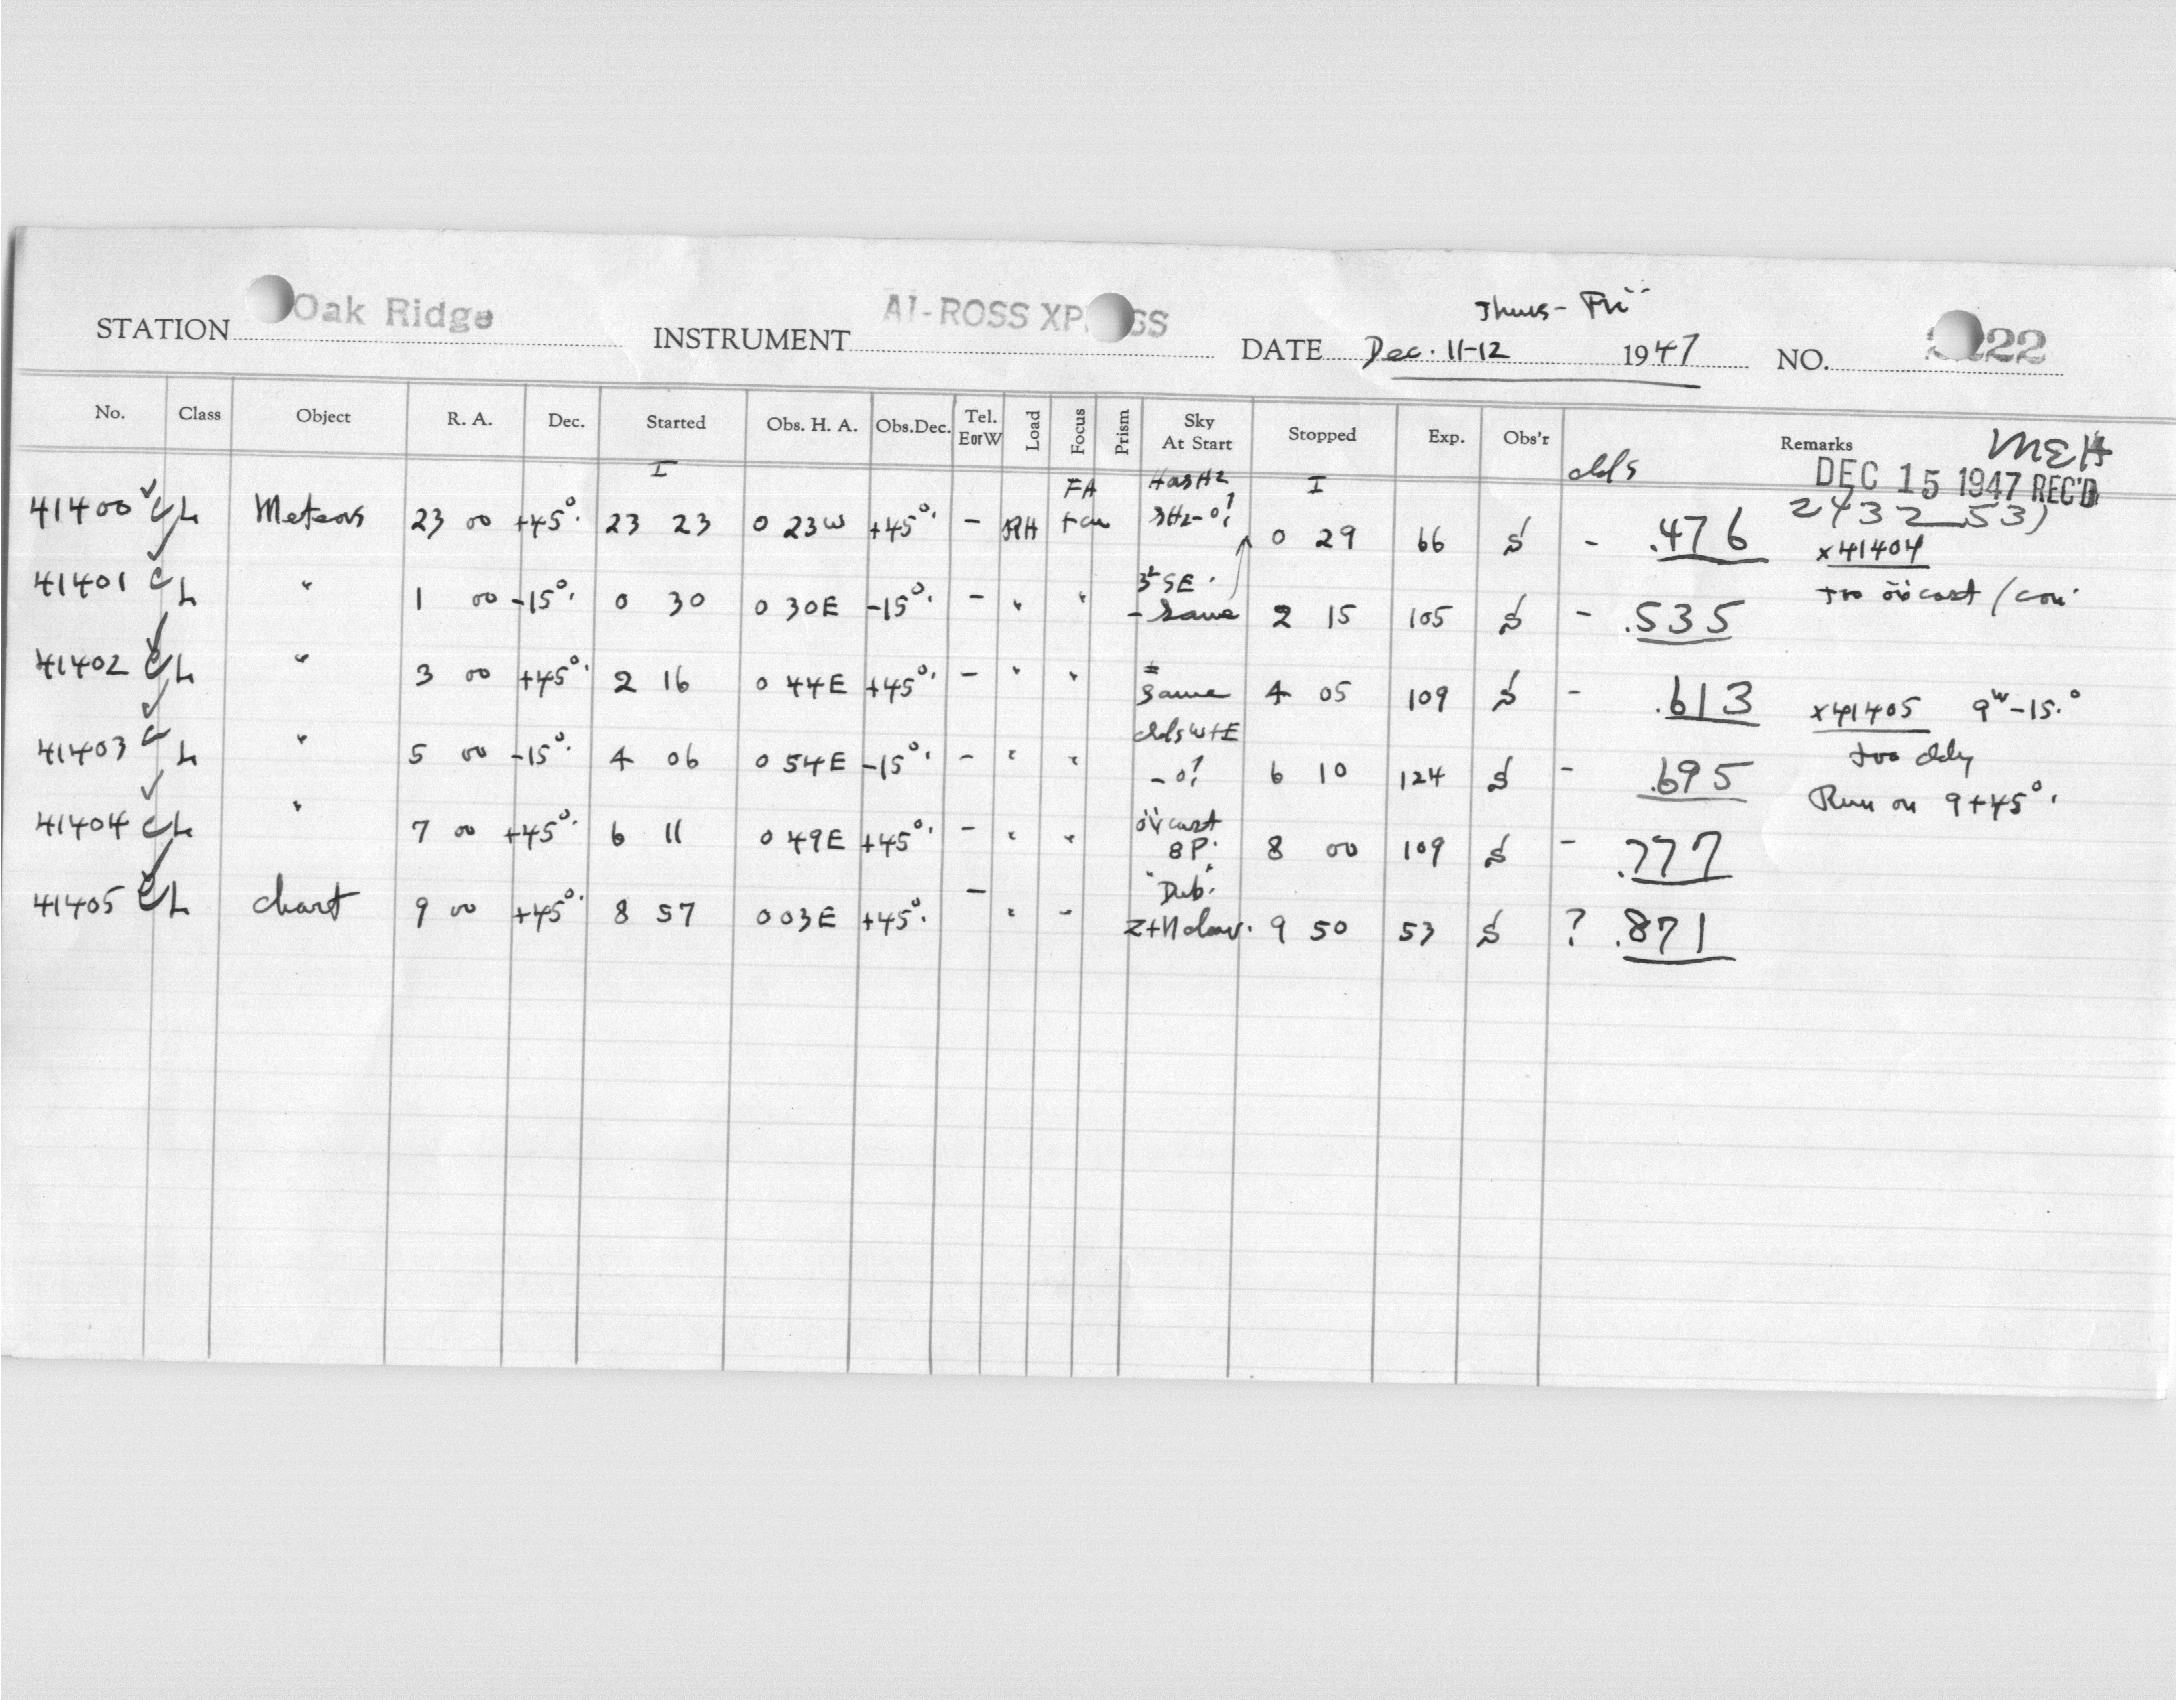 Thurs - Fri
STATION Oak Ridge INSTRUMENT AI-ROSS XP SS DATE Dec. 11-12 1947 NO. 22
No. Class Object R. A. Dec. Started Obs. H. A. Obs.Dec. Tel. EorW Load Focus Prism Sky At Start Stopped Exp. Obs'r Remarks
MEH
DEC 15 1947 REC'D
clds
41400 CL Meteors 23 00 +45° 23 23 0 23W +45° - RH FA 0 29 66 - .476
x41404
41401 CL " 1 00 -15° 0 30 0 30E -15° - " " SE - same 2 15 105 - .535
41402 CL " 3 00 +45° 2 16 0 44E +45° - " " same 4 05 109 - .613
x41405 9 -15°
41403 CL " 5 00 -15° 4 06 0 54E -15° - " " clds W+E - 0? 6 10 124 - .695
too cldy
Run on 9 +45°
41404 CL " 7 00 +45° 6 11 0 49E +45° - " " 8P. 8 00 109 - .777
41405 CL chart 9 00 +45° 8 57 0 03E +45° - " - "Dub." Z+N 9 50 53 ? .871